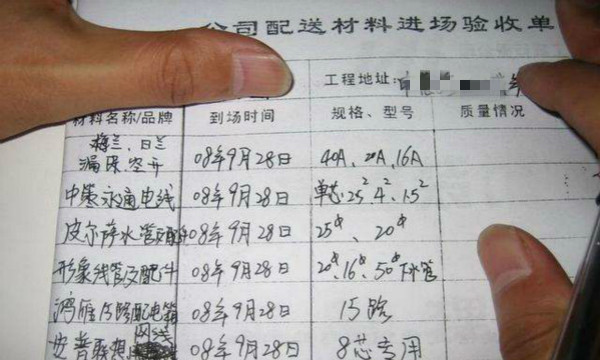 公司配送材料进场验收单
工程地址:
材料名称/品牌 到场时间 规格、型号 质量情况
梅兰、日兰
漏保、空开 08年9月28日 40A、20A、16A
中策永通电线 08年9月28日 单芯·2.5² 4² 1.5²
皮尔萨水管及配件 08年9月28日 25# 、20#
形象线管及配件 08年9月28日 20#、16#、50#下水管
鸿雁15路配电箱 08年9月28日 15路
网线
安普联想 08年9月28日 8芯专用